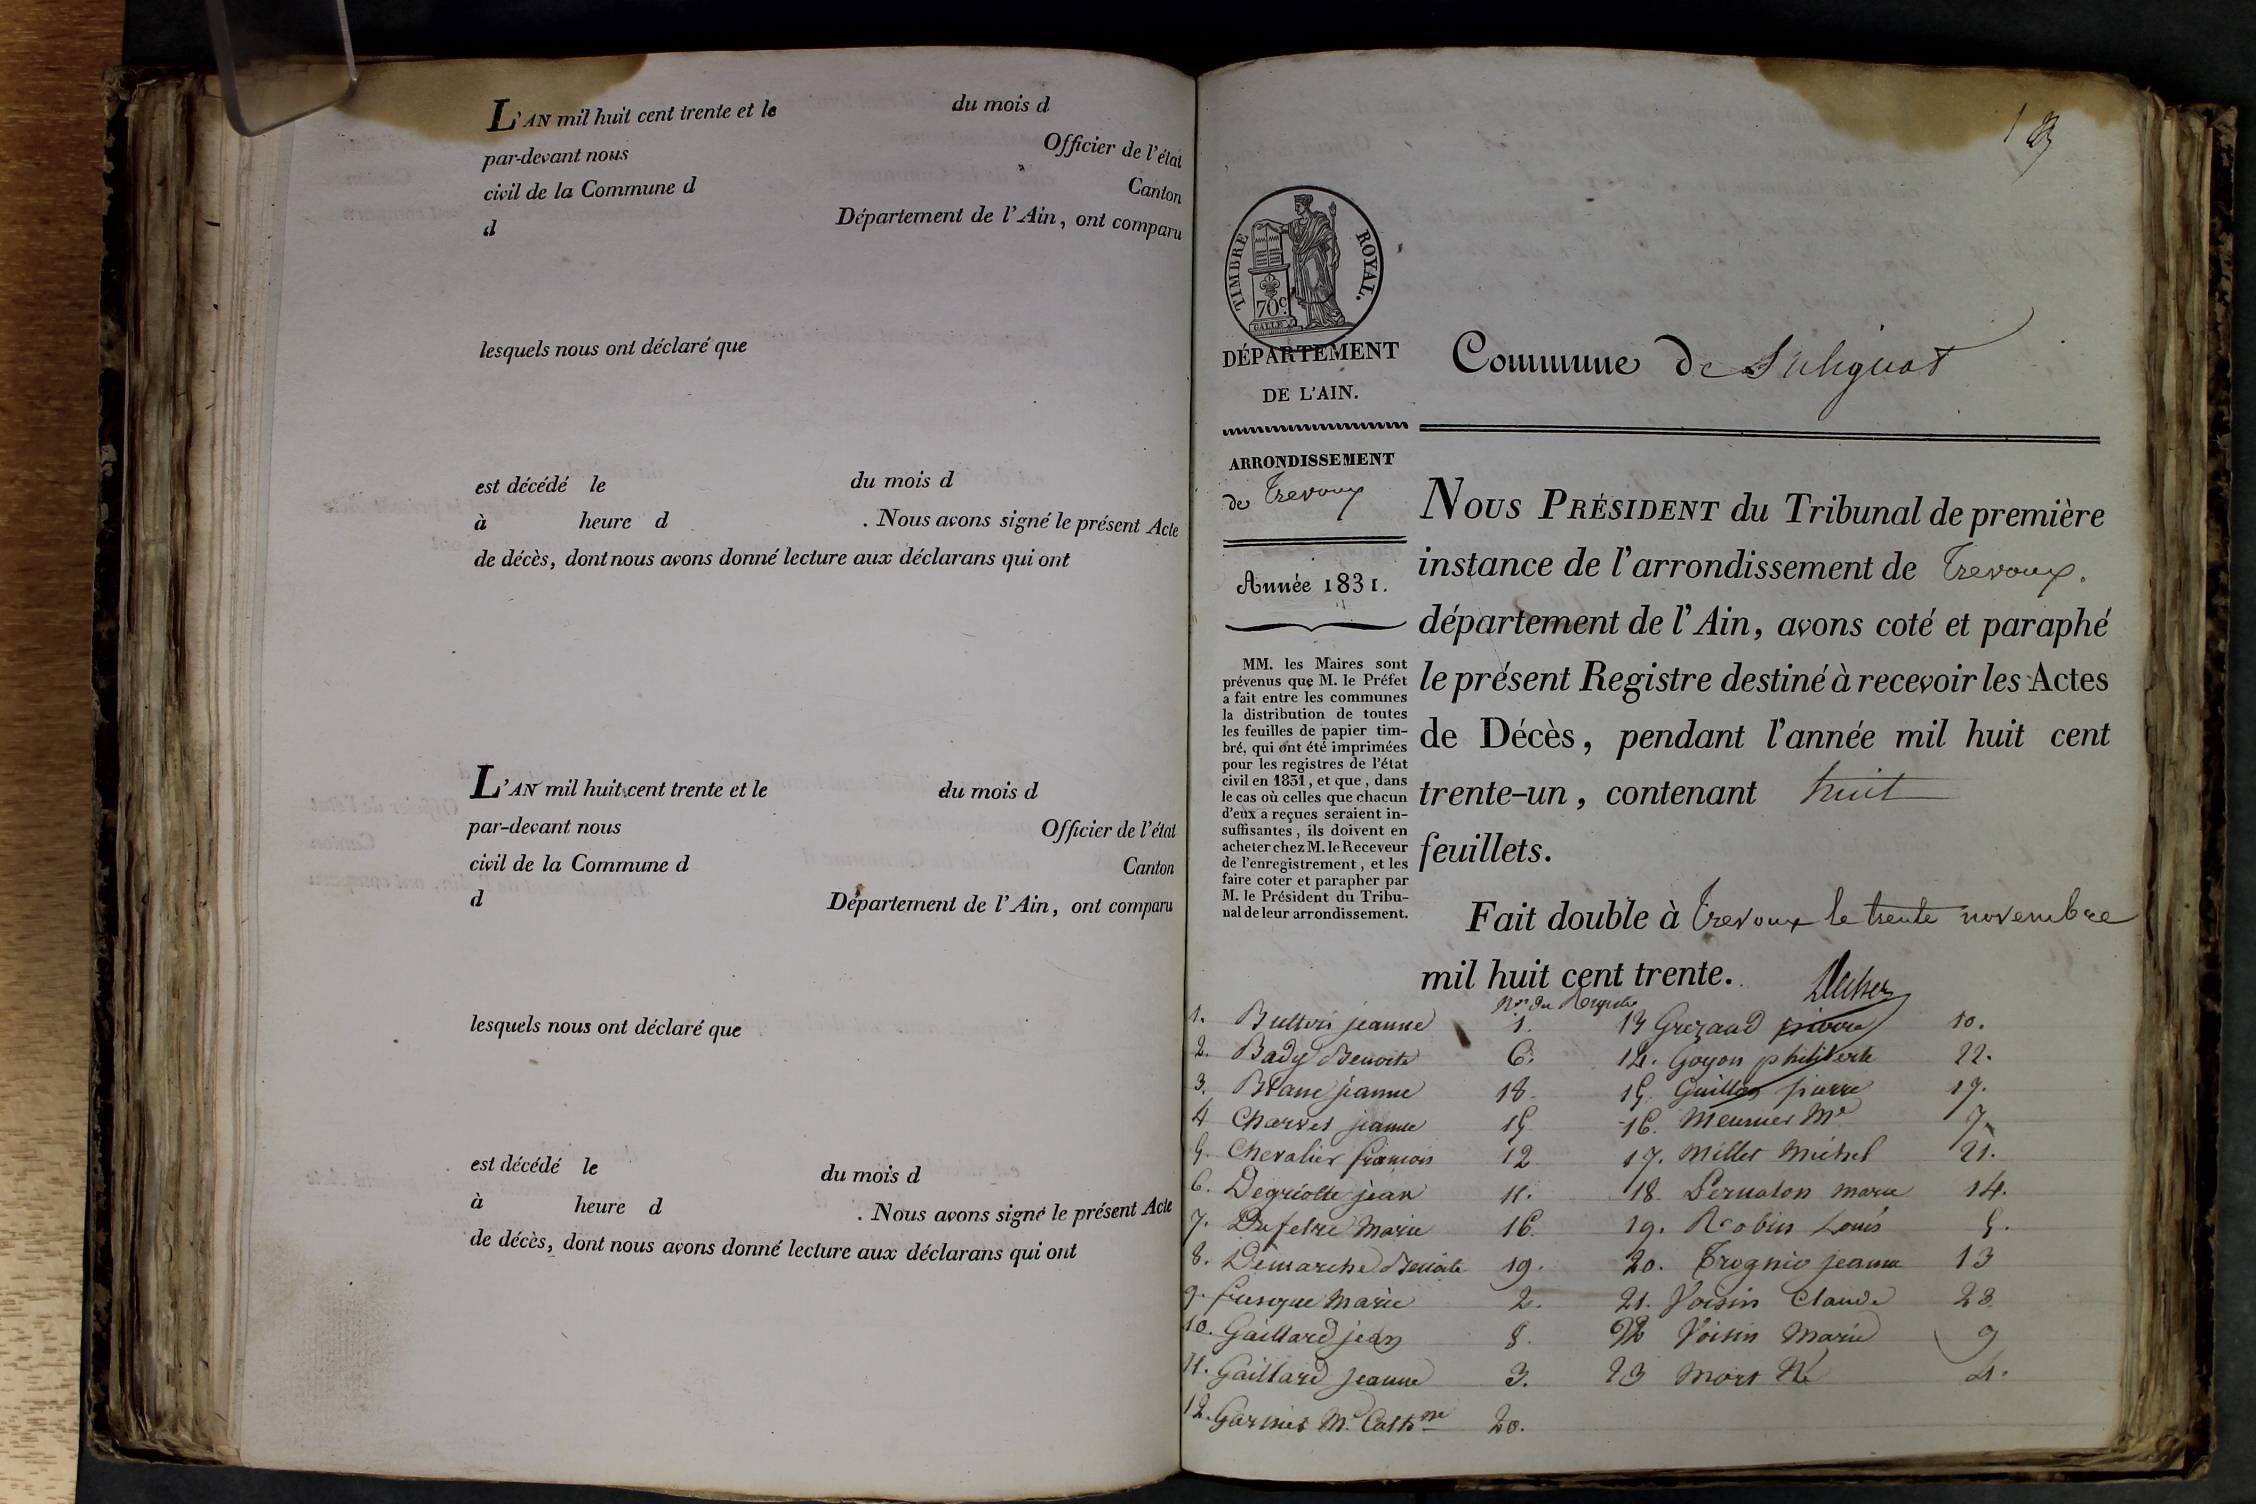 L'AN mil huit cent trente et le du mois d
par-devant nous Officier de l'état
civil de la Commune d Canton
d Département de l'Ain, ont comparu
lesquels nous ont déclaré que
est décédé le du mois d
à heure d . Nous avons signé le présent Acte
de décès, dont nous avons donné lecture aux déclarans qui ont
L'AN mil huit cent trente et le du mois d
par-devant nous Officier de l'état
civil de la Commune d Canton
d Département de l'Ain, ont comparu
lesquels nous ont déclaré que
est décédé le du mois d
à heure d . Nous avons signé le présent Acte
de décès, dont nous avons donné lecture aux déclarans qui ont
TIMBRE ROYAL.
70 c.
DÉPARTEMENT
DE L'AIN.
ARRONDISSEMENT
de Trevoux
Année 1831.
MM. les Maires sont
prévenus que M. le Préfet
a fait entre les communes
la distribution de toutes
les feuilles de papier tim-
bré, qui ont été imprimées
pour les registres de l'état
civil en 1831, et que, dans
le cas où celles que chacun
d'eux a reçues seraient in-
suffisantes, ils doivent en
acheter chez M. le Receveur
de l'enregistrement, et les
faire coter et parapher par
M. le Président du Tribu-
nal de leur arrondissement.
Commune de Sulignat
NOUS PRÉSIDENT du Tribunal de première
instance de l'arrondissement de Trevoux.
département de l'Ain, avons coté et paraphé
le présent Registre destiné à recevoir les Actes
de Décès, pendant l'année mil huit cent
trente-un, contenant huit
feuillets.
Fait double à Trevoux le trente novembre
mil huit cent trente.
Nos du Registre
1. jeanne 1. 13 Grezaud pierre 10.
2. Bady Benoite 6. 14. Goyon philiberte 22.
3. Blanc jeanne 18. 15. Guillon pierre 17.
4 Charvet jeanne 15 16. Meunier Me 7.
5. Chevalier francois 12 17. Millet Michel 21.
6. Degriolte jean 11. 18. marie 14.
7. Dufetre Marie 16 19. Robin Louis 5.
8. Demarche Benoite 19. 20. jeanne 13
9. Marie 2. 21. Voisin Claude 23
10. Gaillard jean 8. 22 Voisin Marie 9
11. Gaillard jeanne 3. 23 Mort Né 4.
12. Garnier Me Cathne 20.